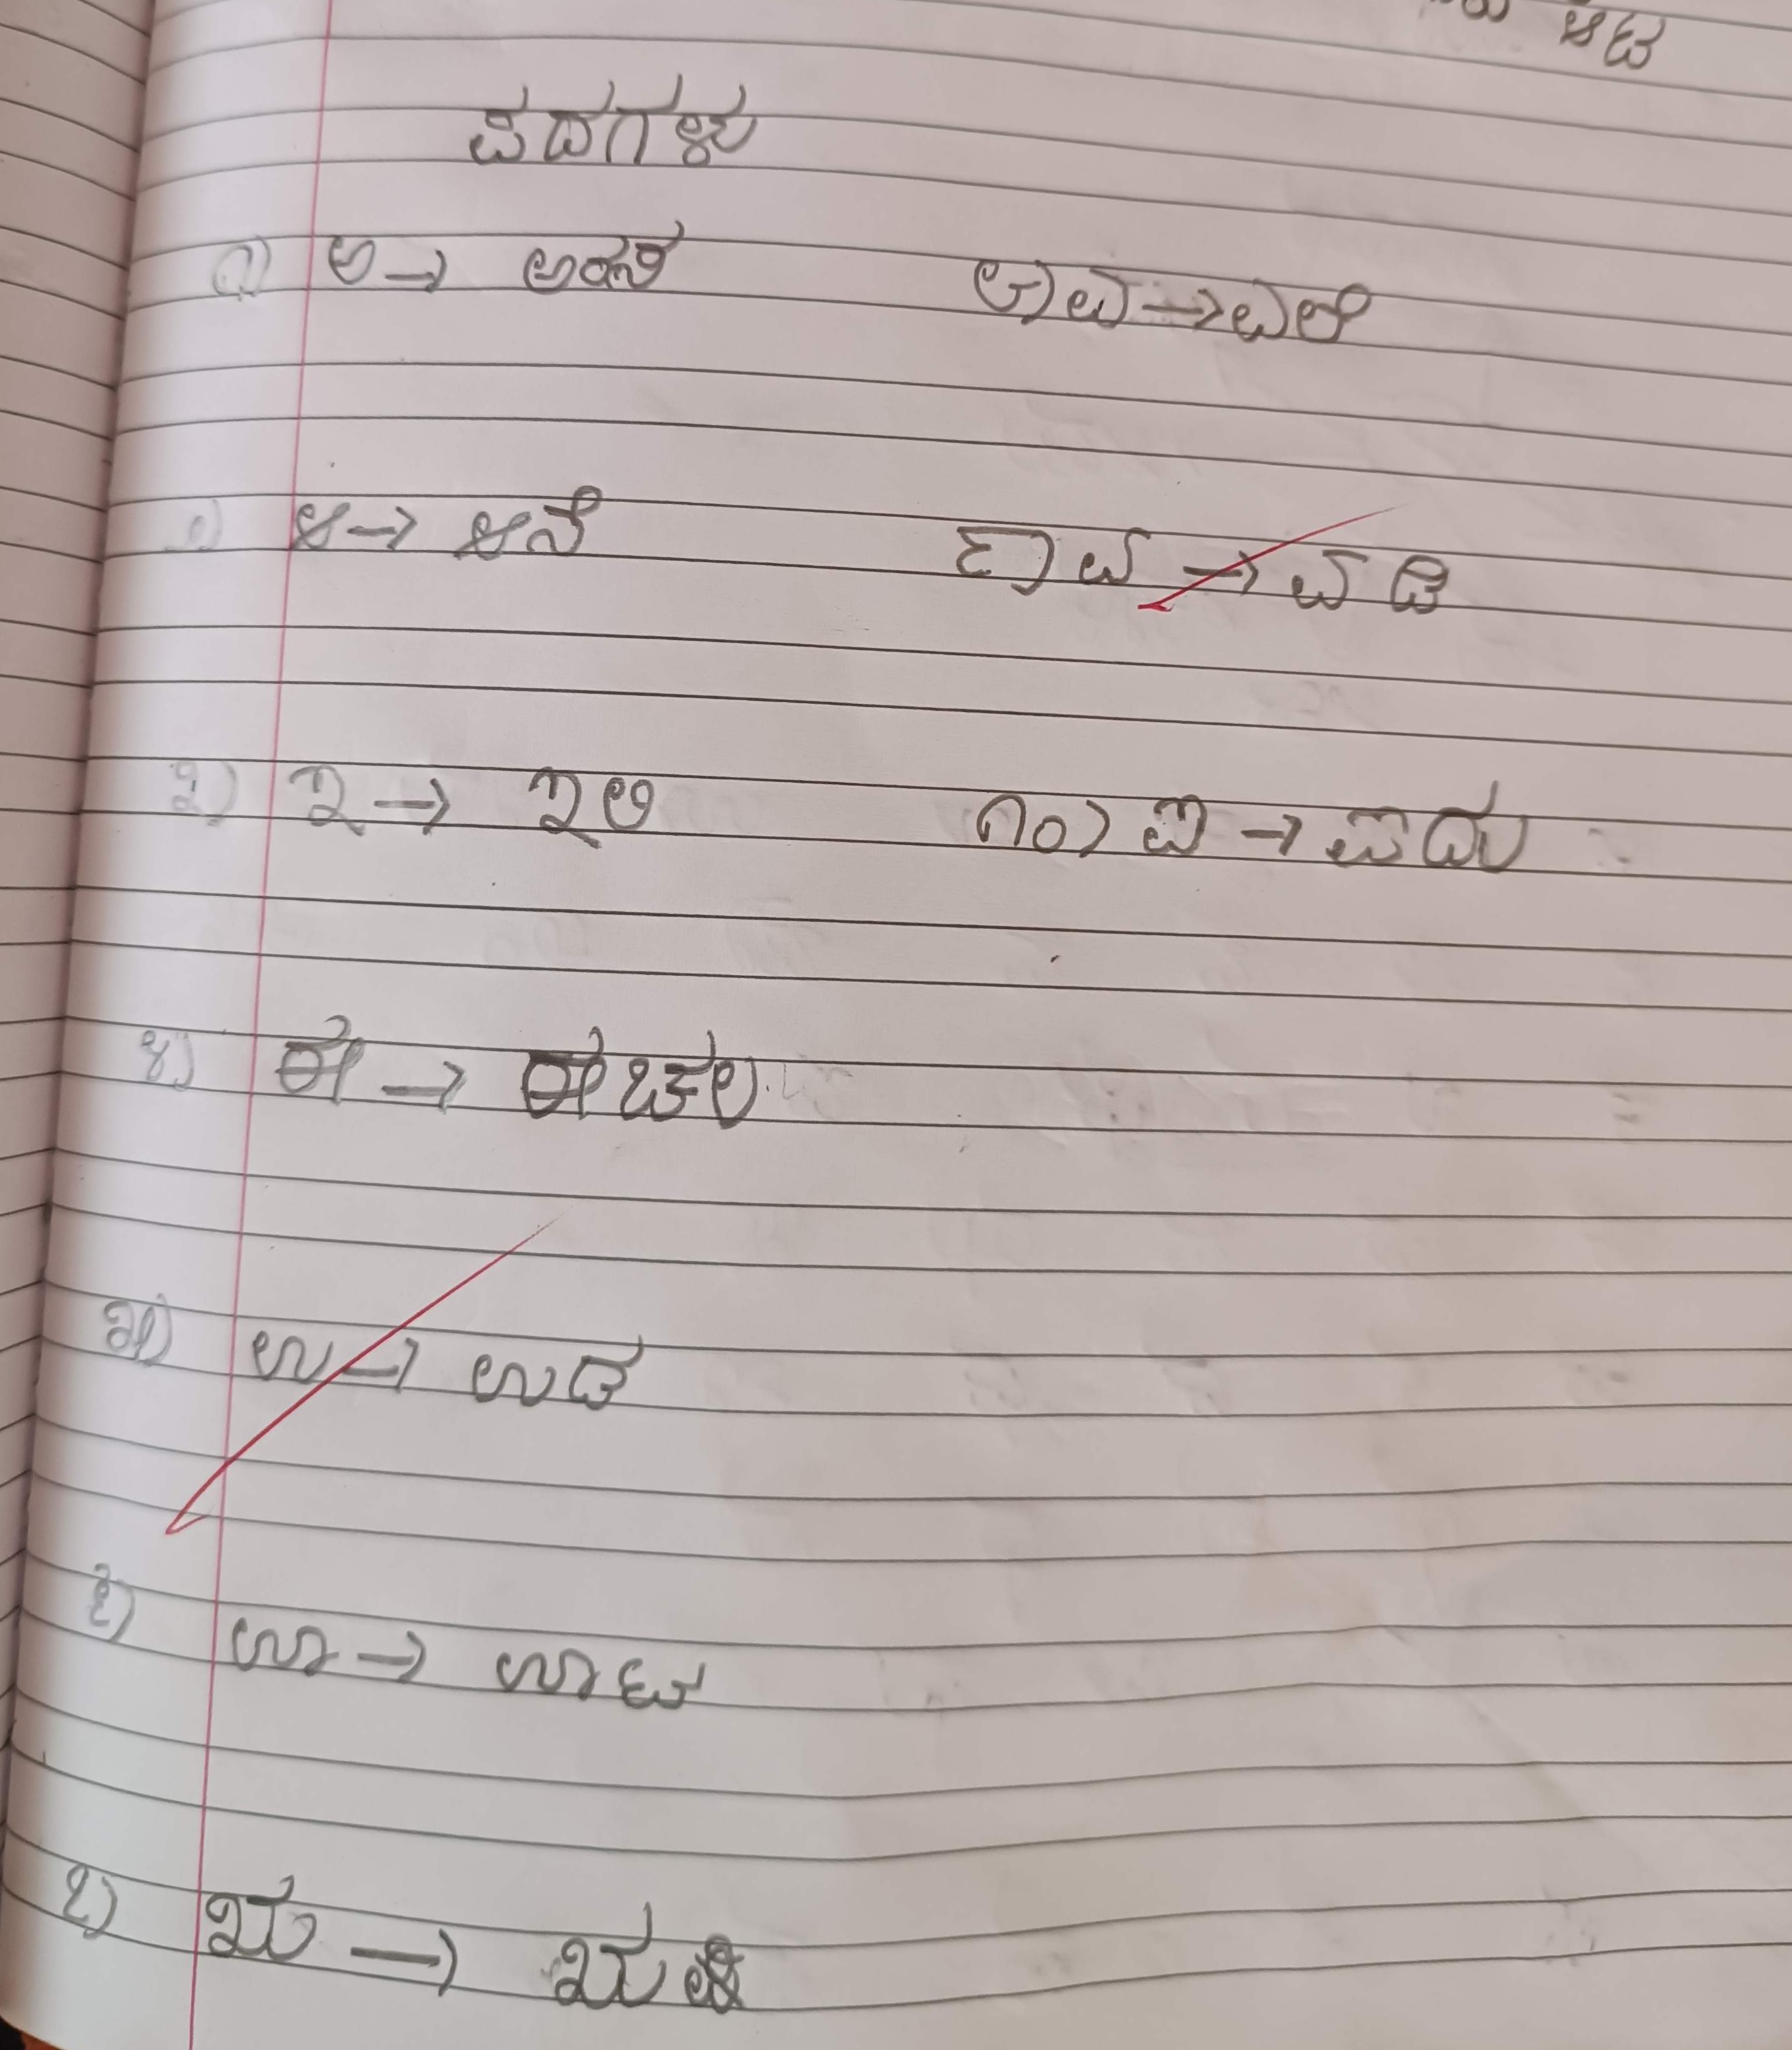 ಆಟ
ಪದಗಳು
೧) ಅ → ಅರಸ
೨) ಆ → ಆನೆ
೩) ಇ → ಇಲಿ
೪) ಈ → ಈಚಲ
೫) ಉ → ಉಡ
೬) ಊ → ಊಟ
೭) ಋ → ಋಷಿ
೮) ಎ → ಎಲೆ
೯) ಏ → ಏಡಿ
೧೦) ಐ → ಐದು